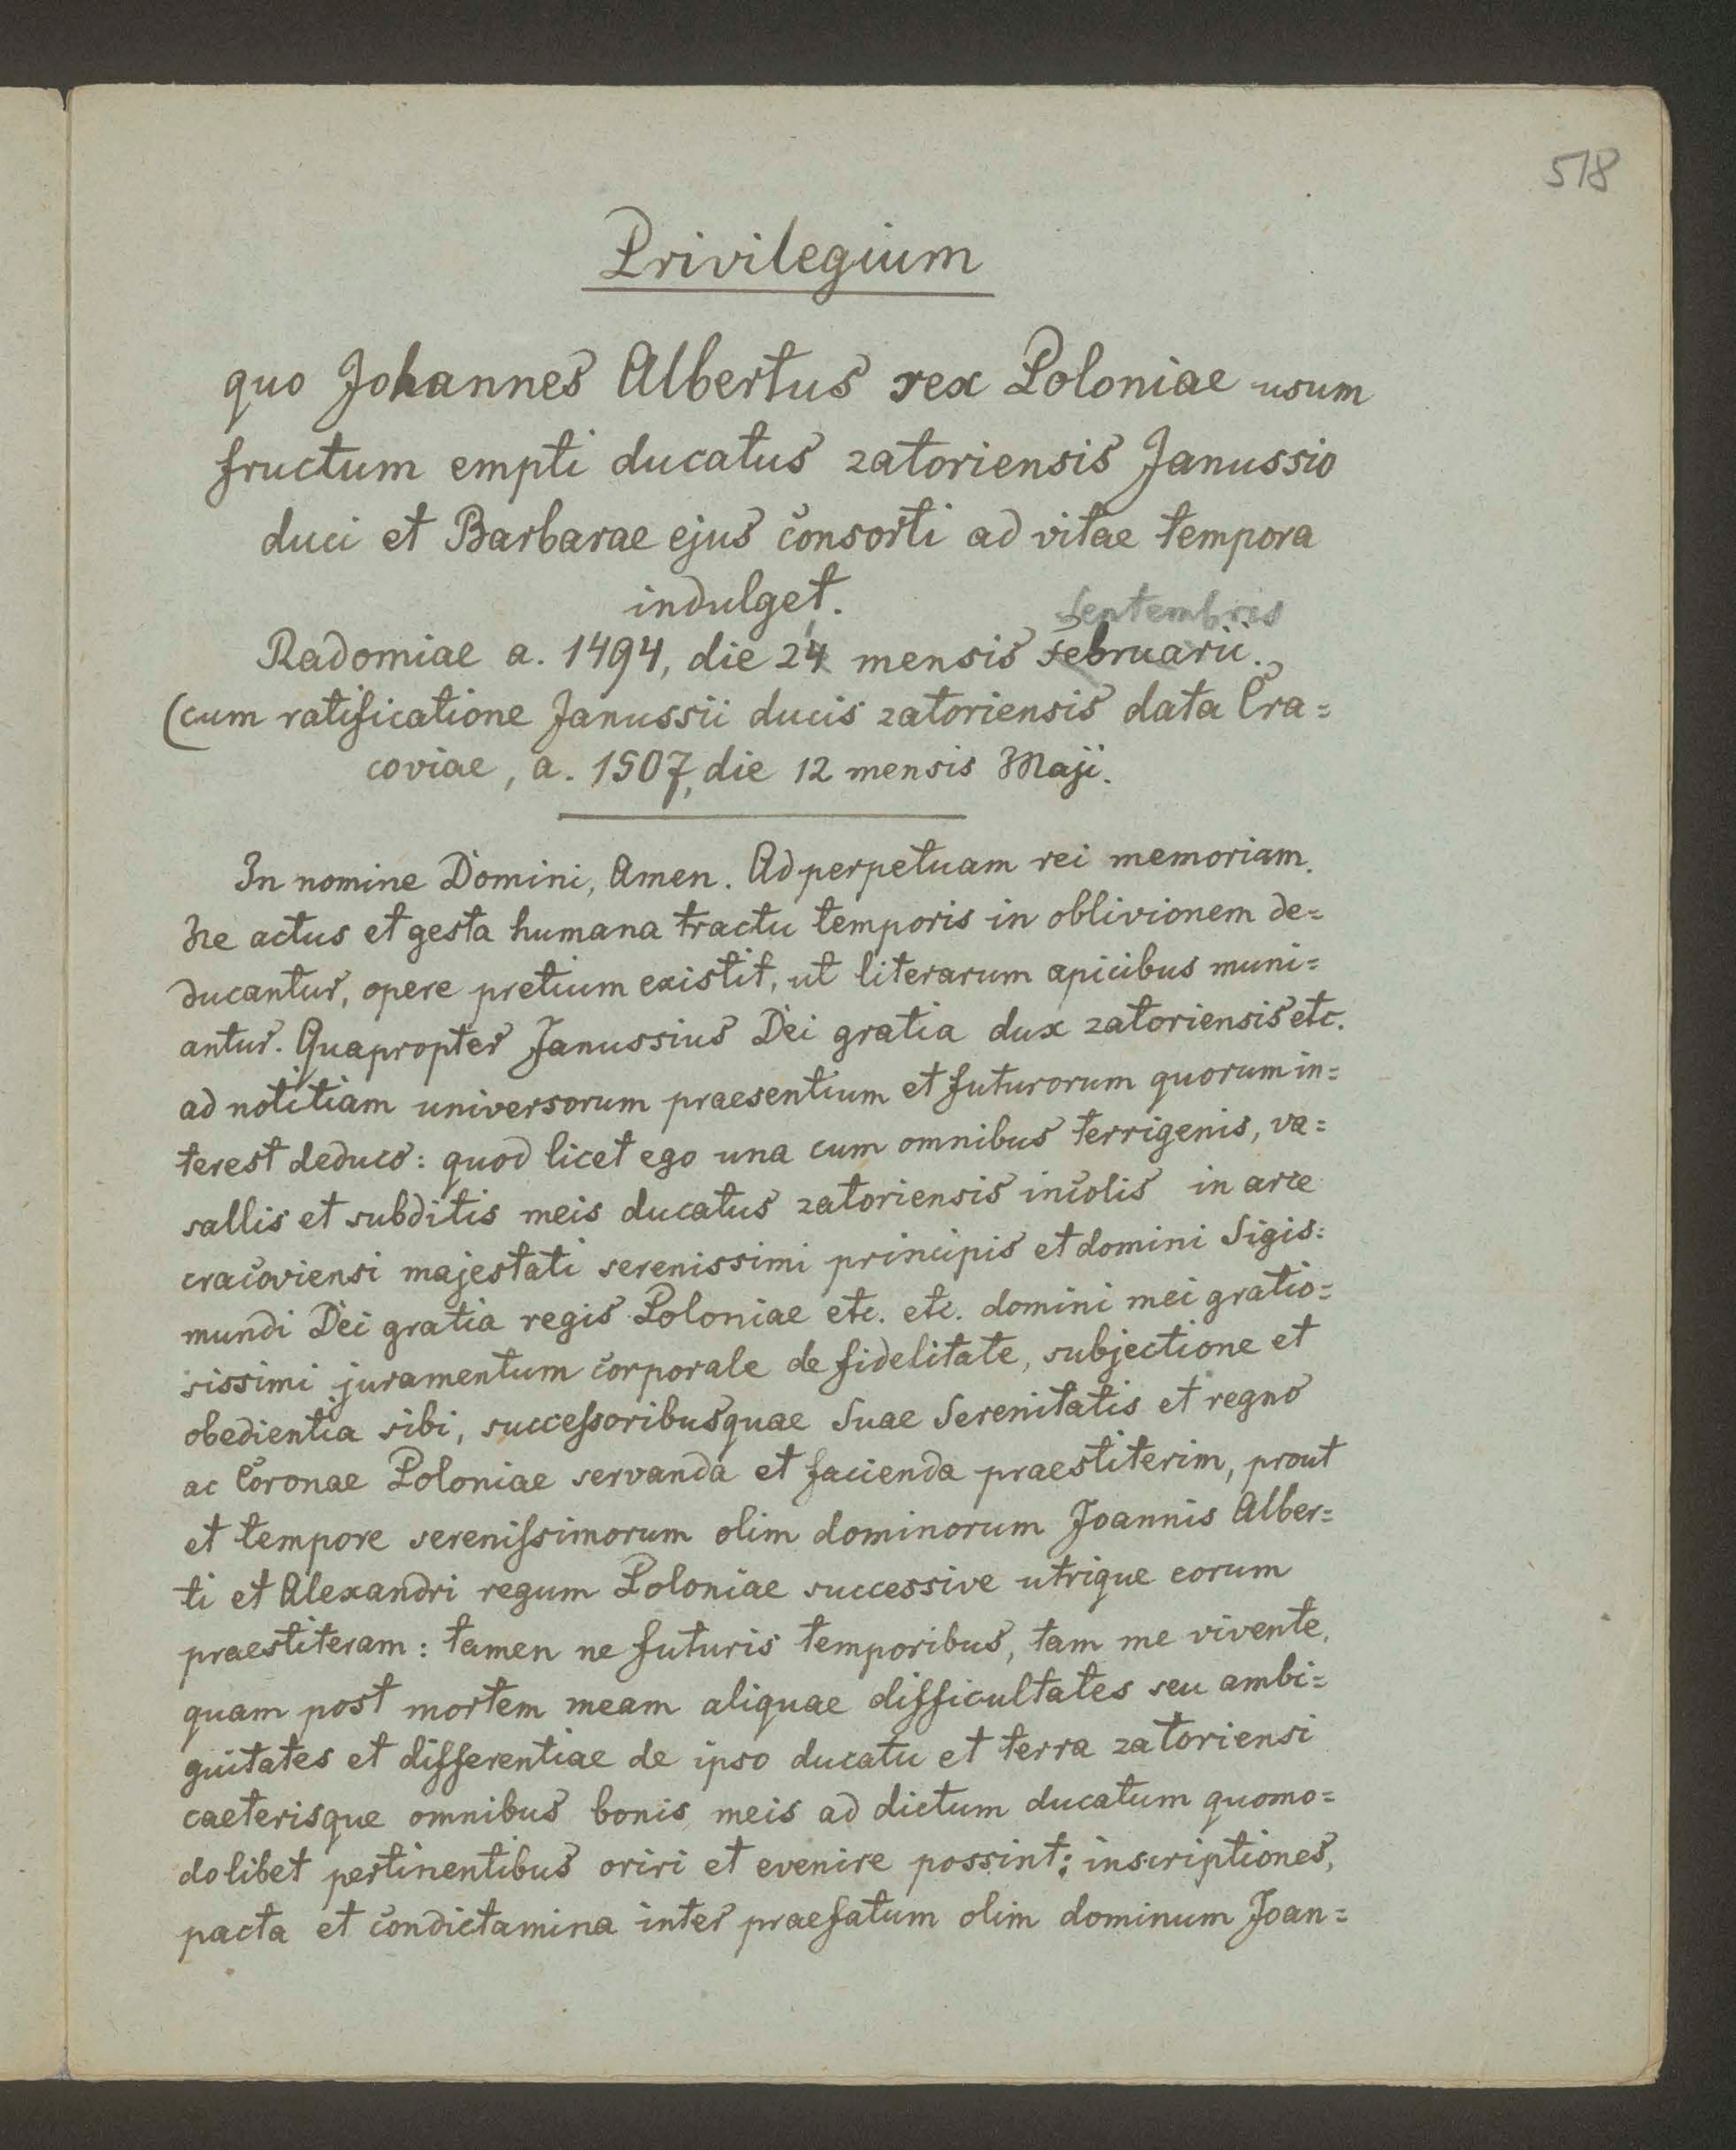 518
Privilegium
quo Johannes Albertus rex Poloniae usum
fructum empti ducatus zatoriensis Janussio
duci et Barbarae ejus consorti ad vitae tempora
indulget.
Septembris
Radomiae a. 1494, die 24 mensis februarii.
(cum ratificatione Janussii ducis zatoriensis data Cra=
coviae, a. 1507, die 12 mensis Maji.
In nomine Domini, Amen. Ad perpetuam rei memoriam.
Ne actus et gesta humana tractu temporis in oblivionem de=
ducantur, opere pretium existit, ut literarum apicibus muni=
antur. Quapropter Janussius Dei gratia dux zatoriensis etc.
ad notitiam universorum praesentium et futurorum quorum in=
terest deduco: quod licet ego una cum omnibus terrigenis, va=
sallis et subditis meis ducatus zatoriensis incolis in arce
cracoviensi majestati serenissimi principis et domini Sigis=
mundi Dei gratia regis Poloniae etc. etc. domini mei gratio=
sissimi juramentum corporale de fidelitate, subjectione et
obedientia sibi, succeſsoribusquae Suae Serenitatis et regno
ac Coronae Poloniae servanda et facienda praestiterim, prout
et tempore sereniſsimorum olim dominorum Joannis Alber=
ti et Alexandri regum Poloniae successive utrique eorum
praestiteram: tamen ne futuris temporibus, tam me vivente,
quam post mortem meam aliquae difficultates seu ambi=
guitates et differentiae de ipso ducatu et terra zatoriensi
caeterisque omnibus bonis meis ad dictum ducatum quomo=
dolibet pertinentibus oriri et evenire possint; inscriptiones,
pacta et condictamina inter praefatum olim dominum Joan=